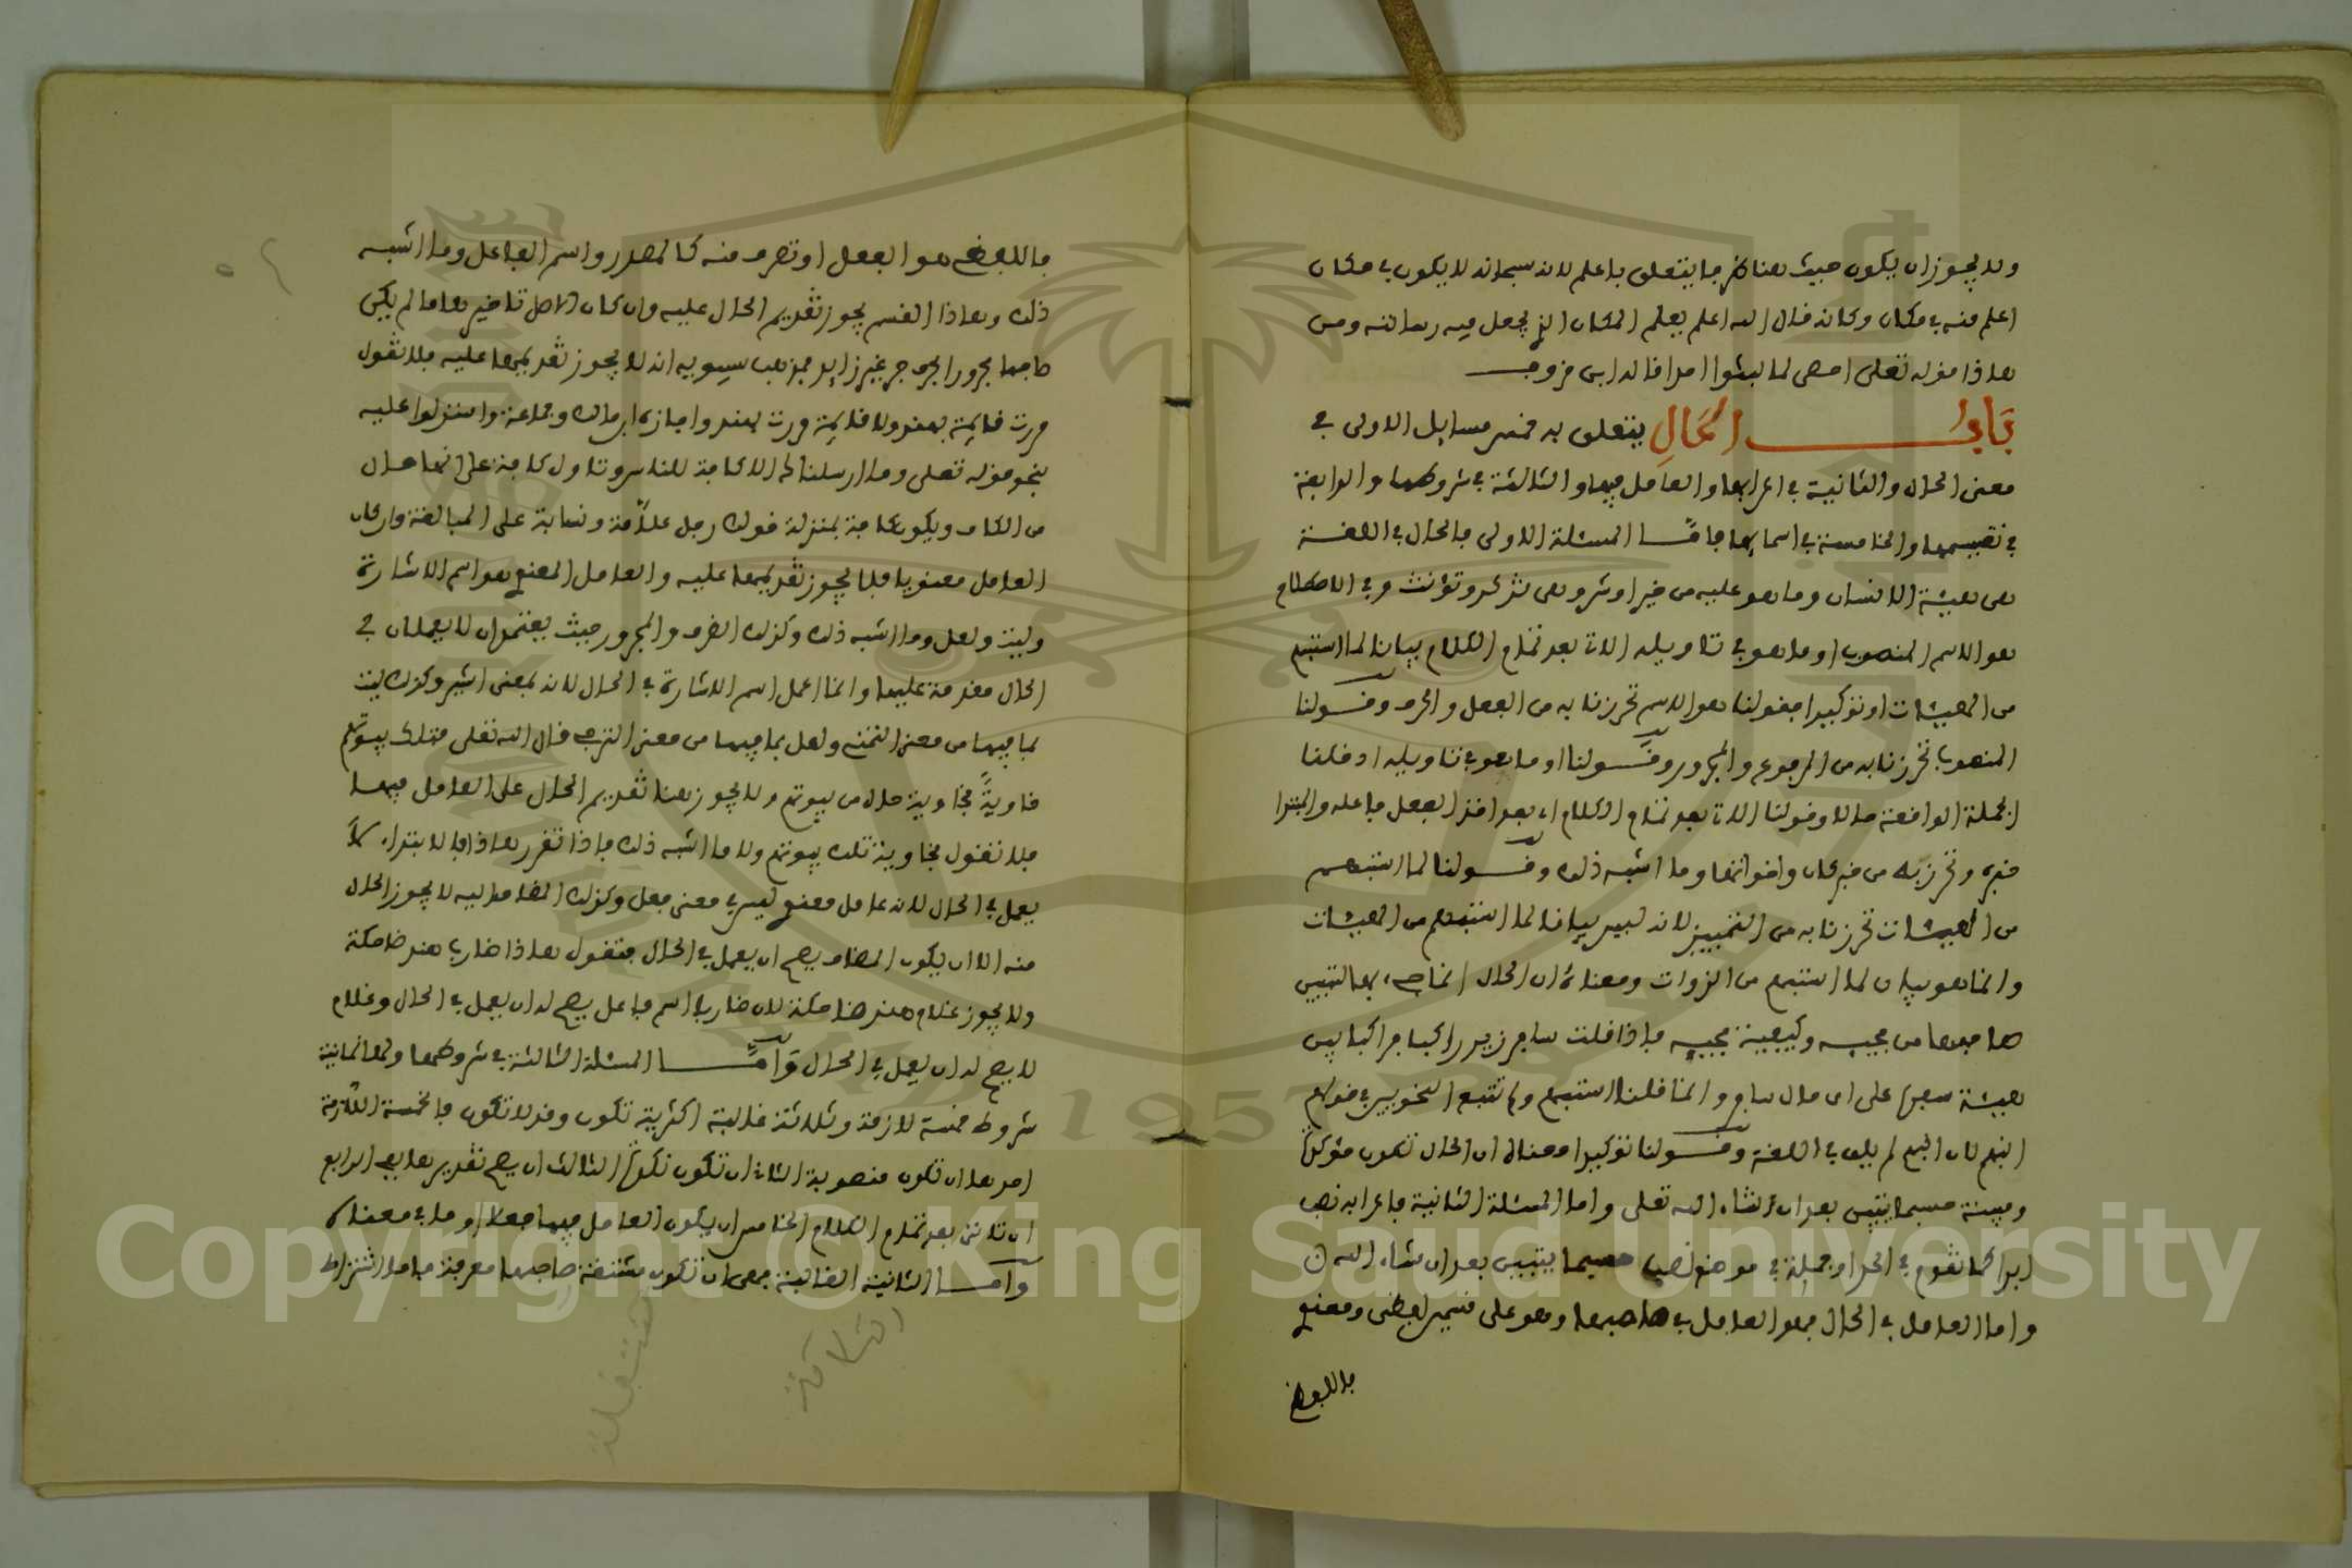 ولا يجوز ان يكون حيث هنا ظرفا يتعلق باعلم لانه سبحانه لا يكون في مكان
اعلم منه في مكان وكانه قال الله اعلم يعلم المكان الذي يجعل فيه رسالته ومن
هذا قوله تعلى احصى لما لبثوا امدا قاله ابن خروف
باب الحال يتعلق به خمس مسايل الاولى في
معنى الحال والثانية في اعرابها والعامل فيها والثالثة في شروطها والرابعة
في تقسيمها والخامسة في اسمايها فاما المسئلة الاولى فالحال في اللغة
هي هيئة الانسان وما هو عليه من خير او شر وهي تذكر وتؤنث وفي الاصطلاح
هو الاسم المنصوب او ما هو في تاويله الات بعد تمام الكلام بيانا لما استبهم
من الهيئات او توكيدا فقولنا هو الاسم تحرزنا به من الفعل والحرف وقولنا
المنصوب تحرزنا به من المرفوع والمجرور وقولنا او ما هو في تاويله ادخلنا
الجملة الواقعة حالا وقولنا الات بعد تمام الكلام اي بعد اخذ الفعل فاعله والمبتدا
خبره وتحرز به من خبر كان واخواتها وما اشبه ذلك وقولنا لما استبهم
من الهيئات تحرزنا به من التمييز لانه ليس بيانا لما استبهم من الهيئات
وانما هو بيان لما استبهم من الذوات ومعناه ان الحال انما جيء بها لتبيين
صاحبها من مجيه وكيفية مجيه فاذا قلت سافر زيد راكبا فراكبا يبين
هيئة سفره على اي حال سافر وانما قلنا استبهم ولم نتبع النحويين في قولهم
انبهم لان انبهم لم يلف في اللغة وقولنا توكيدا معناه ان الحال تكون موكدة
ومبينة حسبما يتبين بعد ان شاء الله تعلى واما المسئلة الثانية فاعرابه نصب
ابدا كما تقوم في الحد او جملة في موضع نصب حسبما يتبين بعد ان شاء الله ن
واما العامل في الحال فهو العامل في صاحبها وهو على قسمين لفظي ومعنوي
فاللفظي
فاللفظي هو الفعل او تصرف منه كالمصدر واسم الفاعل وما اشبه
ذلك وهذا القسم يجوز تقديم الحال عليه وان كان الاصل تاخيرها ما لم يكن
صاحبها مجرورا بحرف جر غير زايد فمذهب سيبويه انه لا يجوز تقديمها عليه فلا تقول
مررت قايمة بهند ولا قايمة مررت بهند واجازه ابن مالك وجماعة واستدلوا عليه
بنحو قوله تعلى وما ارسلناك الا كافة للناس وتاول كافة على انها حال
من الكاف ويكون كافة بمنزلة قولك رجل علامة ونسابة على المبالغة وان كان
العامل معنويا فلا يجوز تقديمها عليه والعامل المعنوي هو اسم الاشارة
وليت ولعل وما اشبه ذلك وكذلك الظرف والمجرور حيث يعتمدان لا يعملان في
الحال مقدمة عليها وانما اعمل اسم الاشارة في الحال لانه بمعنى اشير وكذلك ليت
بما فيها من معنى التمني ولعل بما فيها من معنى الترجي قال الله تعلى فتلك بيوتهم
خاوية فخاوية حال من بيوتهم ولا يجوز هنا تقديم الحال على العامل فيها
فلا تقول خاوية تلك بيوتهم ولا ما اشبه ذلك فاذا تقرر هذا فالابتداء لا
يعمل في الحال لانه عامل معنوي ليس في معنى فعل وكذلك المضاف اليه لا يجوز الحال
منه الا ان يكون المضاف يصح ان يعمل في الحال فتقول هذا ضارب هند ضاحكة
ولا يجوز غلام هند ضاحكة لان ضاربا اسم فاعل يصح له ان يعمل في الحال وغلام
لا يصح له ان يعمل في الحال واما المسئلة الثالثة في شروطها ولها ثمانية
شروط خمسة لازمة وثلاثة غالبة اكثرية تكون وقد لا تكون فالخمسة اللازمة
احدها ان تكون منصوبة الثاني ان تكون نكرة الثالث ان يصح تقديرها بفي الرابع
ان تاتي بعد تمام الكلام الخامس ان يكون العامل فيها فعلا او ما في معناه
واما الثانية الغالبة فهي ان تكون مشتقة صاحبها معرفة فاما اشتراط
الثلاثة
منتقلة
Copyright © King Saud University
1957